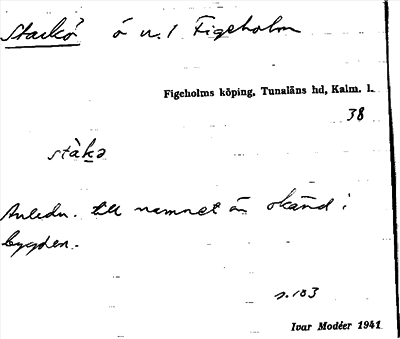 Starkö ö n. 1 Figeholm
Figeholms köping, Tunaläns hd, Kalm. l.
38
stàkə
Anledn. till namnet är okänd i
bygden.
s. 183
Ivar Modéer 1941